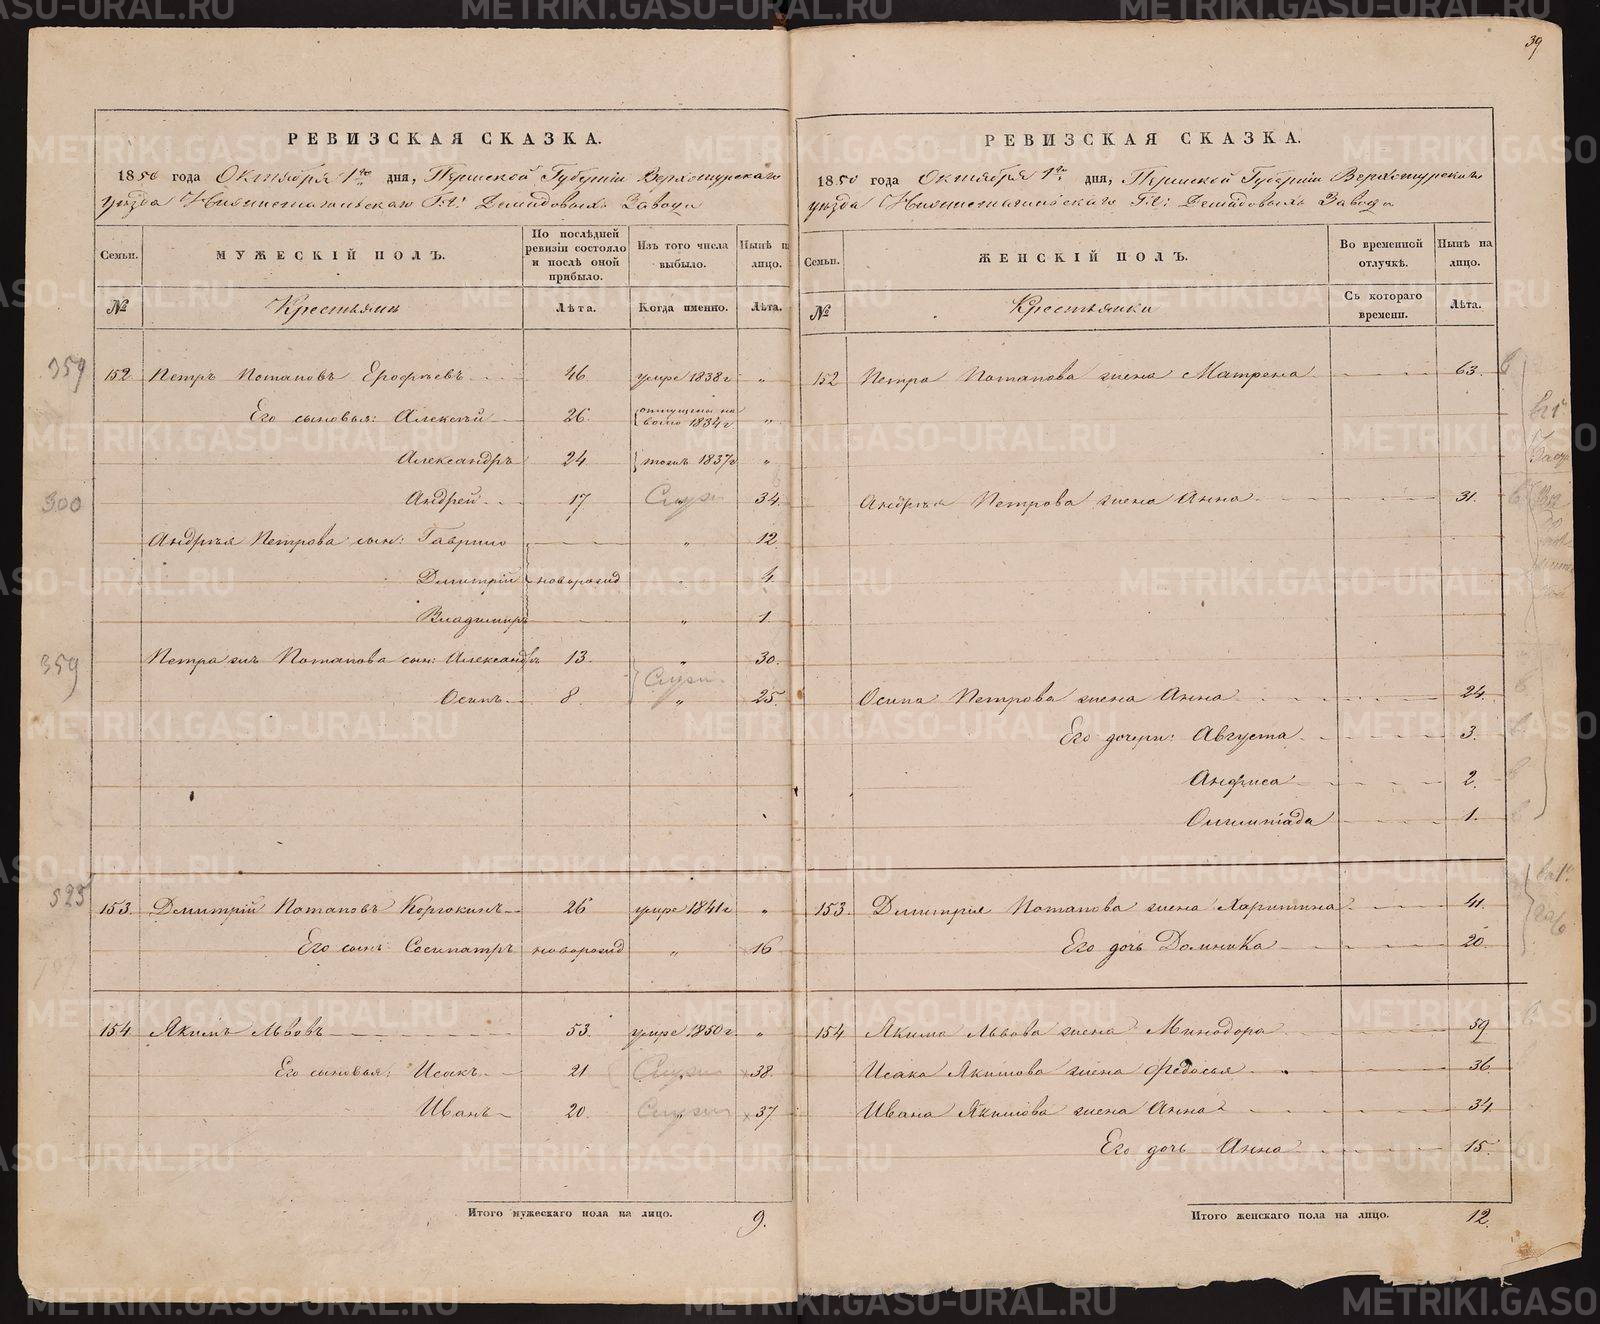 39
РЕВИЗСКАЯ СКАЗКА.
1850 года Октября 1го дня, Пермской Губерніи Верхотурскаго
уѣзда Нижнетагильскаго Г.г: Демидовыхъ Завода
Семьи. МУЖЕСКІЙ ПОЛЪ. По послѣдней ревизіи состояло и послѣ оной прибыло. Изъ того числа выбыло. Нынѣ на лицо.
№ Крестьяне Лѣта. Когда именно. Лѣта.
359 152. Петръ Потаповъ Ерофѣевъ 46 умре 1838 г "
Его сыновья: Алексѣй 26. отпущены на волю 1834 г "
Александръ 24 тожъ 1837 г "
300 Андрей 17 Служ 34.
Андрѣя Петрова сын: Гаврило " 12.
Дмитрій новорожд " 4.
Владимиръ " 1.
359 Петра жъ Потапова сын: Александръ 13. " 30.
Служ.
Осипъ 8. " 25.
525 153. Дмитрій Потаповъ Корюкинъ 26 умре 1841 г "
Его сынъ Сосипатръ новорожд " 16
154 Якимъ Львовъ 53 умре 1850 г "
Его сыновья: Исакъ 21 Служ 38.
Иванъ 20. Служ 37.
Итого мужескаго пола на лицо. 9.
РЕВИЗСКАЯ СКАЗКА.
1850 года Октября 1го дня, Пермской Губерніи Верхотурскаго
уѣзда Нижнетагильскаго Г.г: Демидовыхъ Завода
Семьи. ЖЕНСКІЙ ПОЛЪ. Во временной отлучкѣ. Нынѣ на лицо.
№ Крестьянки Съ котораго времени. Лѣта.
152 Петра Потапова жена Матрена 63.
Андрѣя Петрова жена Анна 31.
Осипа Петрова жена Анна 24.
Его дочери: Августа 3.
Анфиса 2.
Олимпіада 1.
153. Дмитрія Потапова жена Харитина 41.
Его дочь Домника 20.
154 Якима Львова жена Минодора 59
Исака Якимова жена Федосья 36.
Ивана Якимова жена Анна 34
Его дочь Анна 15.
Итого женскаго пола на лицо. 12.
METRIKI.GASO-URAL.RU